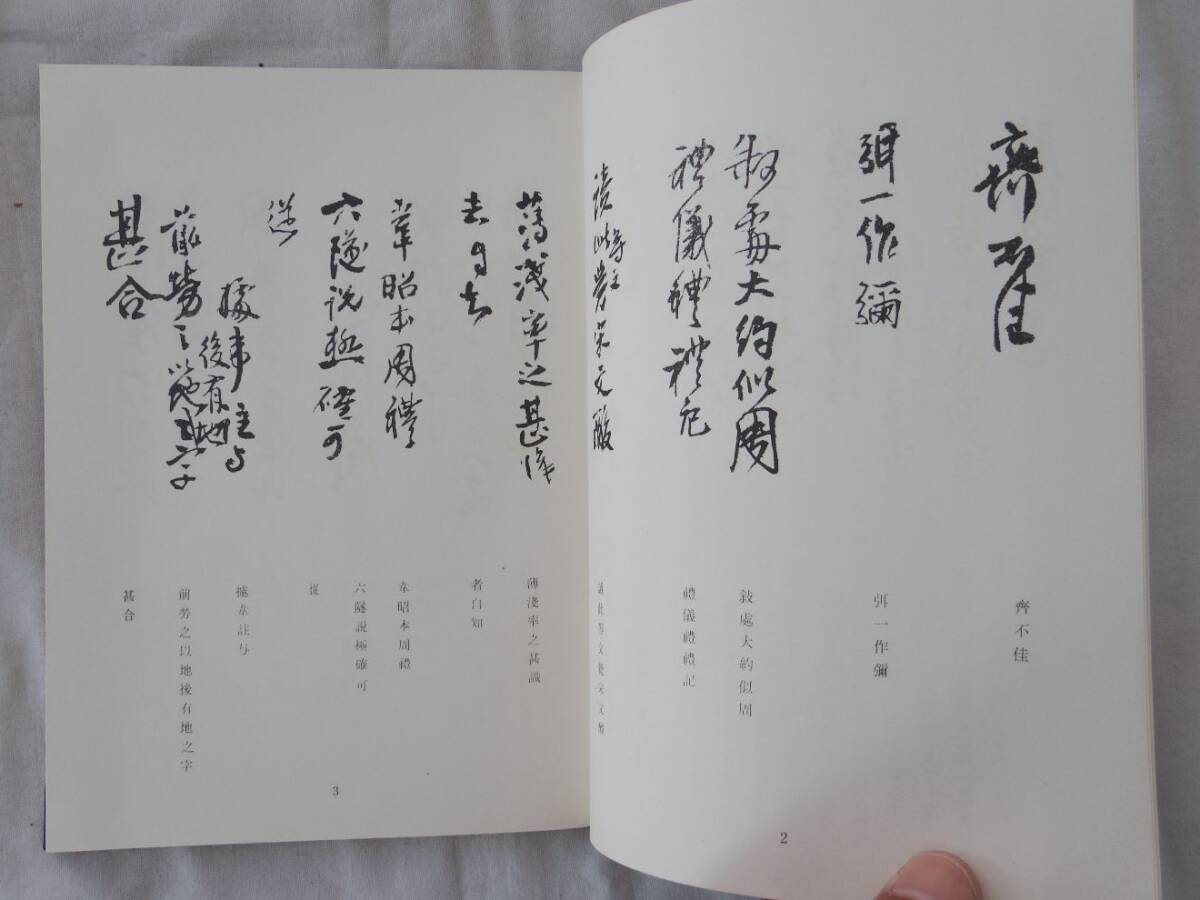 齊不佳
弭一作彌
敍處大約似周
禮儀禮禮記
讀此等文覺宋文酸
齊不佳
弭一作彌
敍處大約似周
禮儀禮禮記
讀此等文覺宋文酸
2
薄淺率之甚識
者自知
韋昭本周禮
六隧説極確可
從
據韋註与
前勞之以地後有地之字
甚合
薄淺率之甚識
者自知
韋昭本周禮
六隧説極確可
從
據韋註与
前勞之以地後有地之字
甚合
3